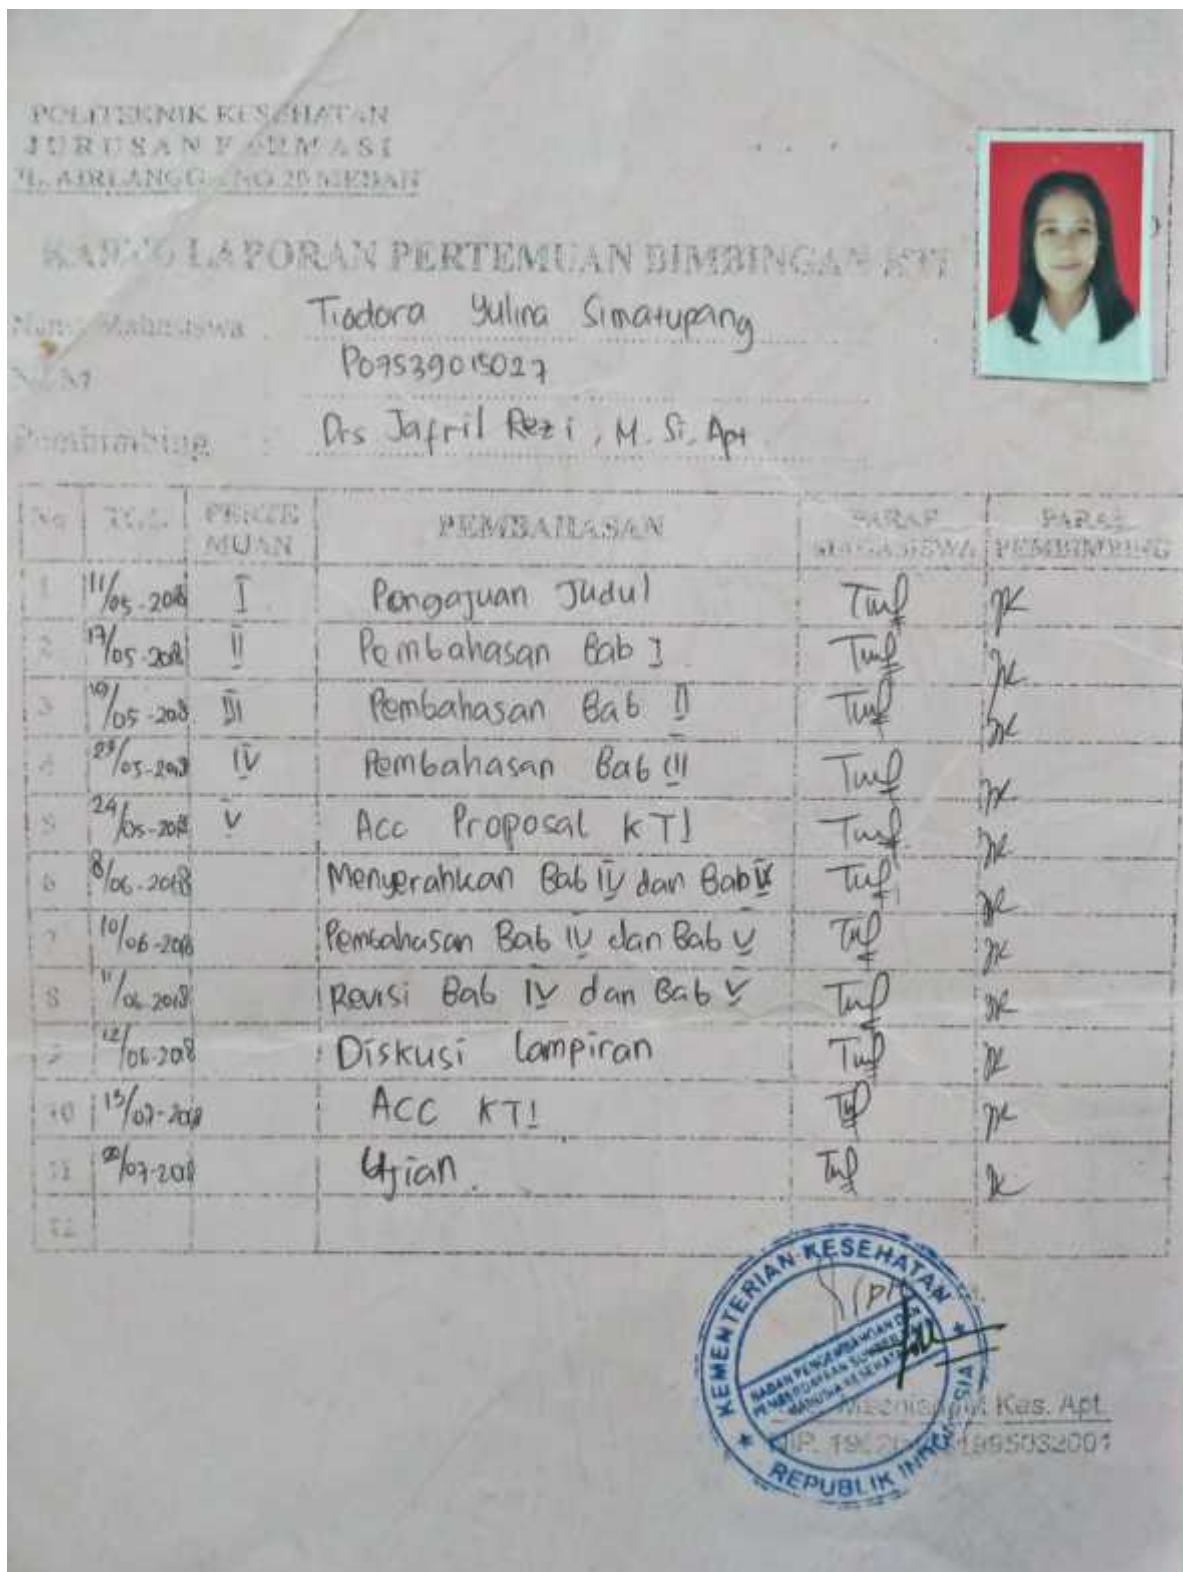 POLITEKNIK KESEHATAN
JURUSAN FARMASI
JL. AIRLANGGA NO 20 MEDAN
KARTU LAPORAN PERTEMUAN BIMBINGAN KTI
Nama Mahasiswa : Tiodora Yulina Simatupang
NIM P07539015027
Pembimbing : Drs Jafril Rezi, M. Si, Apt
No TGL PERTE MUAN PEMBAHASAN PARAF MAHASISWA PARAF PEMBIMBING
1 11/05-2018 I Pengajuan Judul
2 17/05-2018 II Pembahasan Bab I
3 /05-2018 III Pembahasan Bab II
4 23/05-2018 IV Pembahasan Bab III
5 24/05-2018 V Acc Proposal KTI
6 8/06-2018 Menyerahkan Bab IV dan Bab
7 10/06-2018 Pembahasan Bab IV dan Bab V
8 11/06-2018 Revisi Bab IV dan Bab V
9 12/06-2018 Diskusi Lampiran
10 /07-2018 ACC KTI
11 /07-2018 Ujian.
12
KEMENTERIAN KESEHATAN
BADAN PENGEMBANGAN DAN
PEMBERDAYAAN SUMBER DAYA
MANUSIA KESEHATAN
REPUBLIK INDONESIA
Kes. Apt.
NIP. 1995032001